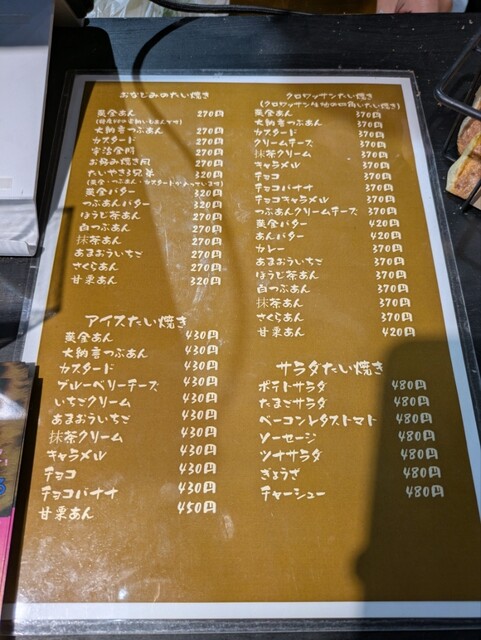 おなじみのたい焼き
黄金あん 270円
大納言つぶあん 270円
カスタード 270円
宇治金時 270円
お好み焼き風 320円
たいやき3兄弟 320円
(黄金・つぶあん・カスタードが入っています)
黄金バター 320円
つぶあんバター 320円
ほうじ茶あん 270円
白つぶあん 270円
抹茶あん 270円
あまおういちご 270円
さくらあん 270円
甘栗あん 320円
アイスたい焼き
黄金あん 430円
大納言つぶあん 430円
カスタード 430円
ブルーベリーチーズ 430円
いちごクリーム 430円
あまおういちご 430円
抹茶クリーム 430円
キャラメル 430円
チョコ 430円
チョコバナナ 430円
甘栗あん 450円
クロワッサンたい焼き
(クロワッサン生地の四角いたい焼き)
黄金あん 370円
大納言つぶあん 370円
カスタード 370円
クリームチーズ 370円
抹茶クリーム 370円
キャラメル 370円
チョコ 370円
チョコバナナ 370円
チョコキャラメル 370円
つぶあんクリームチーズ 370円
黄金バター 420円
あんバター 420円
カレー 370円
あまおういちご 370円
ほうじ茶あん 370円
白つぶあん 370円
抹茶あん 370円
さくらあん 370円
甘栗あん 420円
サラダたい焼き
ポテトサラダ 480円
たまごサラダ 480円
ベーコンレタストマト 480円
ソーセージ 480円
ツナサラダ 480円
ぎょうざ 480円
チャーシュー 480円